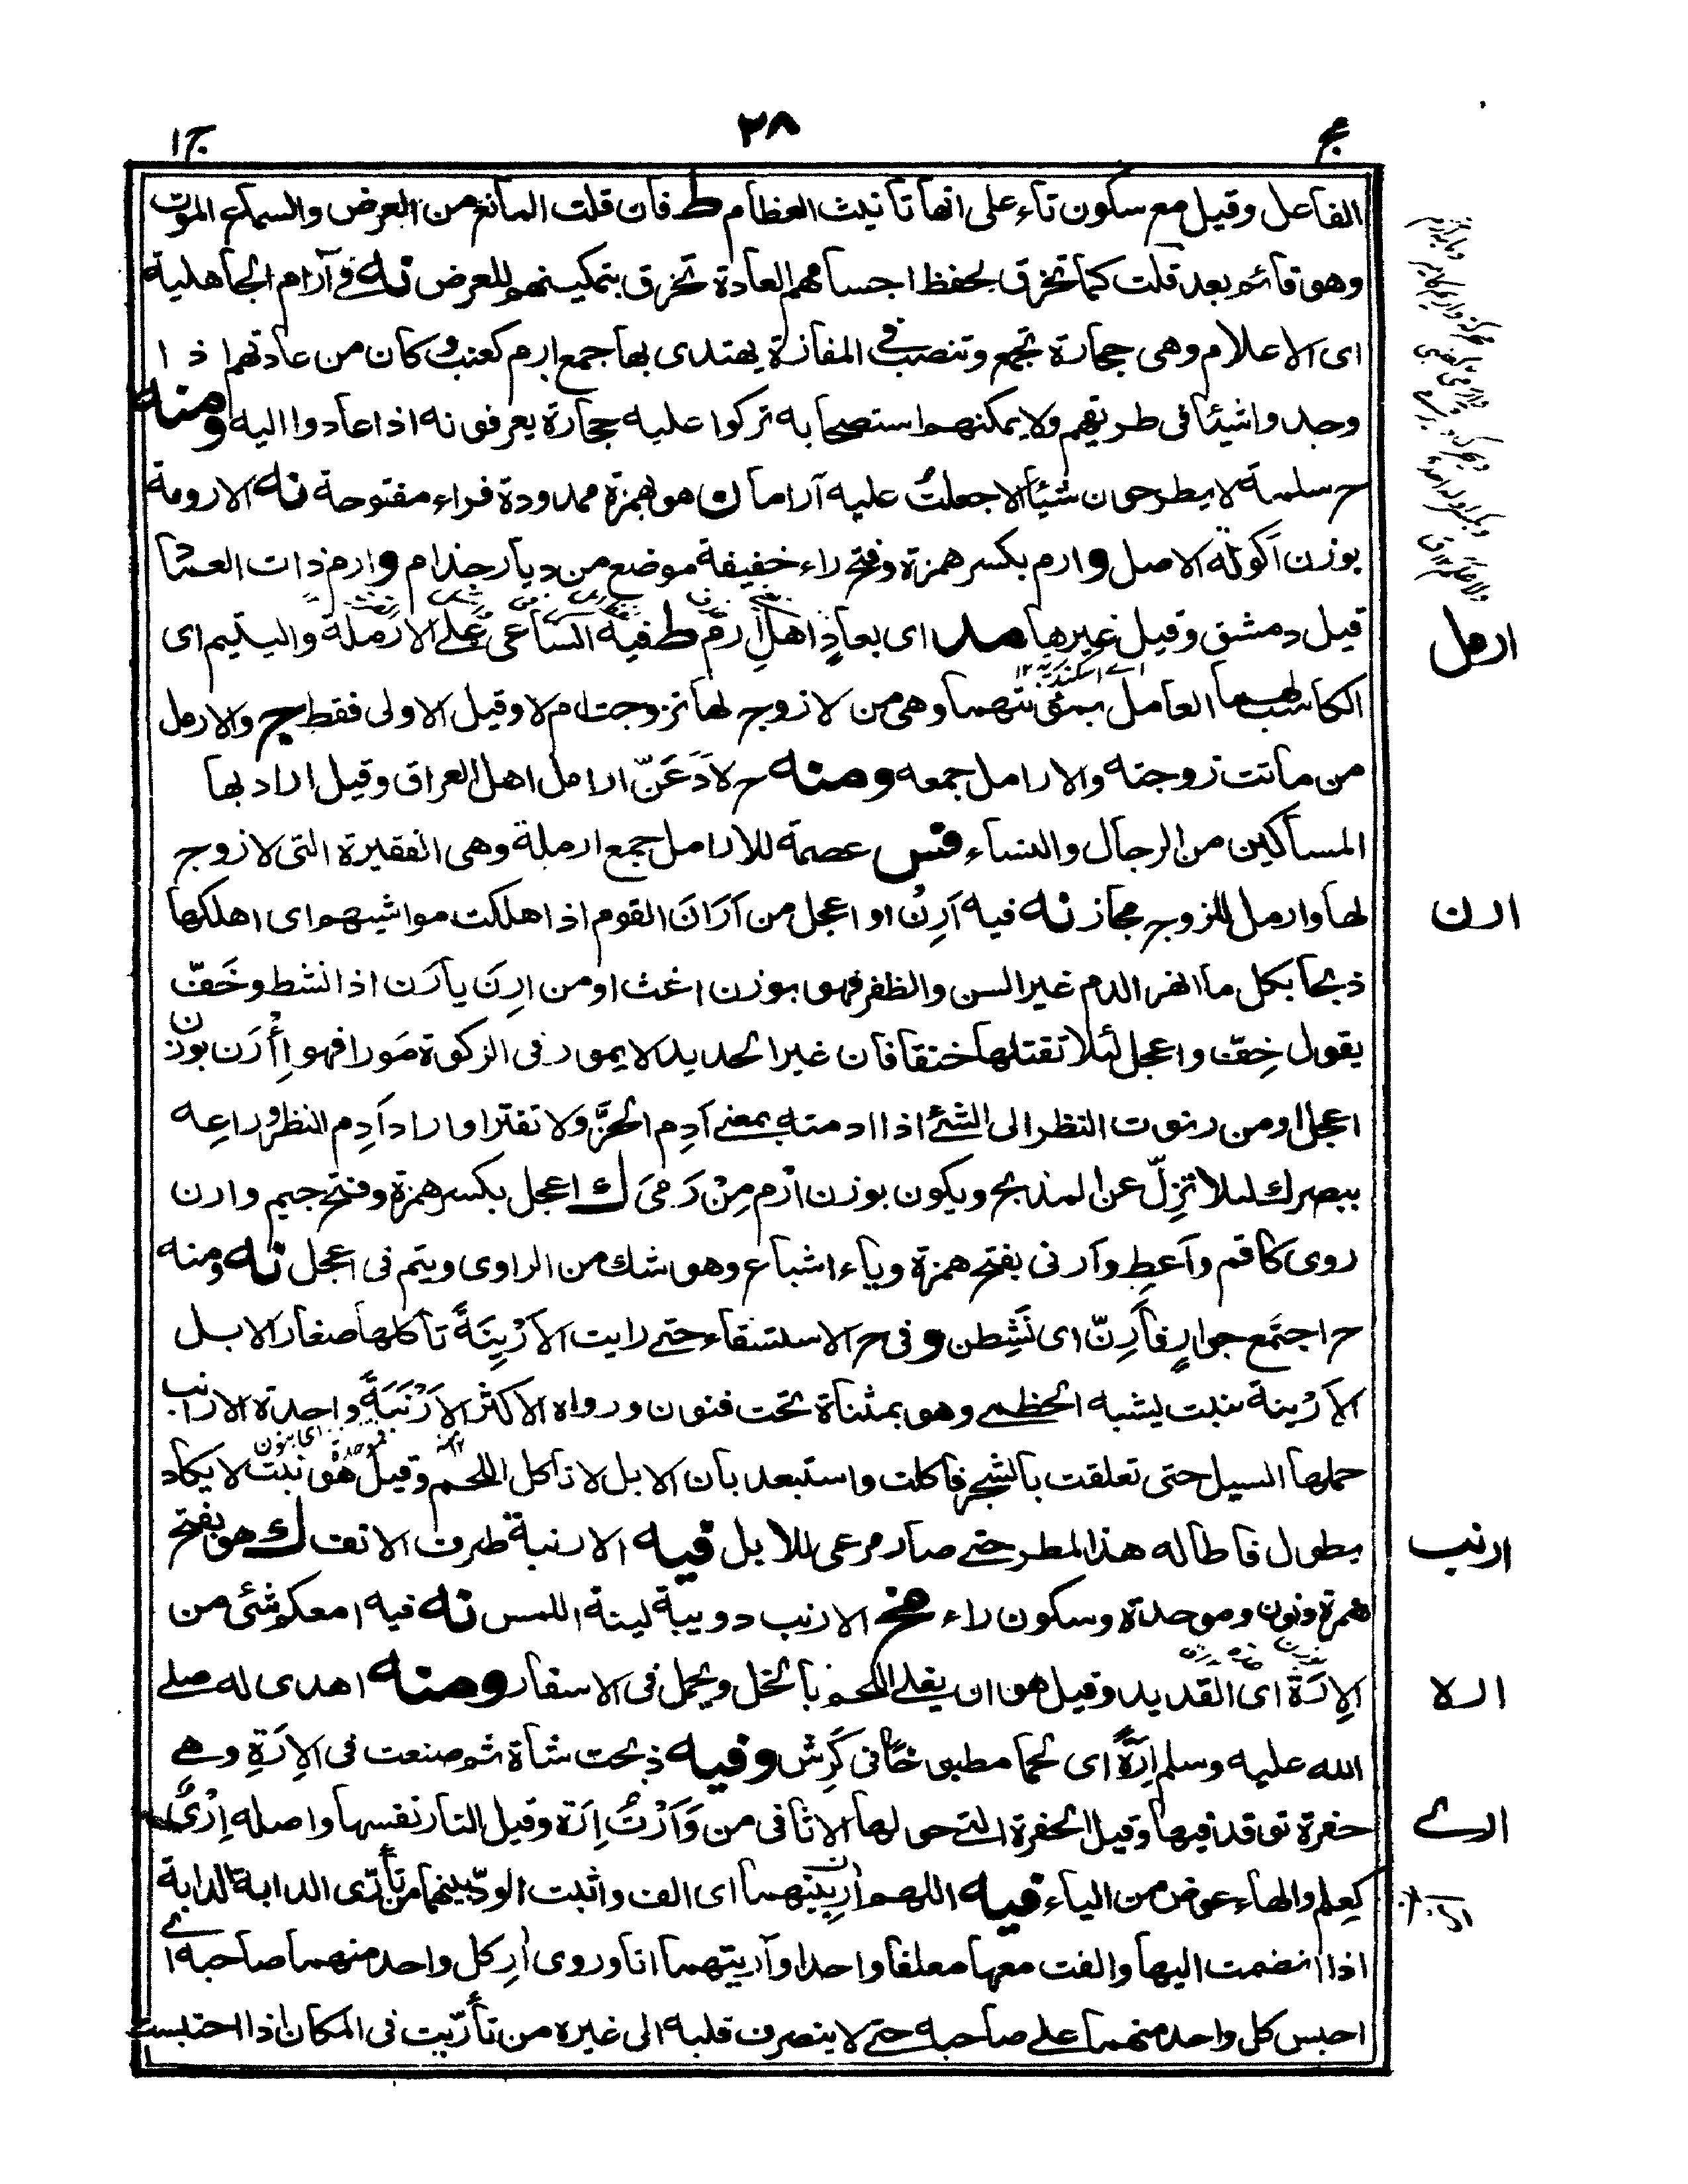 مج ٣٨ ج١
الفاعل وقيل مع سكون تاء على انها تأنيث العظام ط فان قلت المانع من العرض والسماع الموت
وهو قائم بعد قلت كما تخرق بحفظ اجسامهم العادة تخرق بتمكينهم للعرض نه في آرام الجاهلية
اى الاعلام وهى حجارة تجمع وتنصب فى المفازة يهتدى بها جمع ارم كعنب وكان من عادتهم اذا
وجدوا شيئا فى طريقهم ولا يمكنهم استصحابه تركوا عليه حجارة يعرفونه اذا عادوا اليه ومنه
ح سلمة لا يطرحون شيئا الا جعلت عليه آراما ن هو بهمزة ممدودة فراء مفتوحة نه الارومة
بوزن اكولة الاصل وارم بكسر همزة وفتح راء خفيفة موضع من ديار جذام وارم ذات العماد
قيل دمشق وقيل غيرها مد اى بعاد اهل ارم ط فيه الساعى على الارملة واليتيم اى
ارمل
الكاسب لهما العامل بمؤنتهما وهى من لا زوج لها تزوجت ام لا وقيل الاولى فقط ج والارمل
من ماتت زوجته والارامل جمعه ومنه ح لادعن ارامل اهل العراق وقيل اراد بها
المساكين من الرجال والنساء قس عصمة للارامل جمع ارملة وهى الفقيرة التى لا زوج
لها وارمل للزوج مجاز نه فيه اَرِنْ او اعجل من اَرَانَ القوم اذا هلكت مواشيهم اى اهلكها
ارن
ذبحا بكل ما انهر الدم غير السن والظفر فهو بوزن اغث او من ارِنَ يأرَن اذا نشط وخَفّ
يقول خِفّ واعجل لئلا تقتلها خنقا فان غير الحديد لا يمور فى الزكوة مَورا فهو اِأْرَن بوزن
اعجل او من رنوت النظر الى الشئ اذا ادمته بمعنى اَدِم الحَزَّ ولا تفتر او اراد اَدِم النظر وراعِه
ببصرك لئلا تزِلّ عن المذبح ويكون بوزن ارْم مِنْ رَمىَ ك اعجل بكسر همزة وفتح جيم وارن
روى كاقم واَعطِ وآرنى بفتح همزة وياء اشباع وهو شك من الراوى ويتم فى اعجل نه ومنه
ح اجتمع جوارٍ فأَرِنّ اى نَشِطن وفى ح الاستسقاء حتى رايت الاَرْيِنَةَ تأكلها صغار الابل
الاَرْينة نبت يشبه الخطمى وهو بمثناة تحت فنون ورواه الاكثر الاَرْنَبَةَ واحدة الارانب
حملها السيل حتى تعلقت بالشجر فاكلت واستبعد بان الابل لا تاكل اللحم وقيل هو نبت لا يكاد
يطول فاطاله هذا المطر حتى صار مرعى للابل فيه الارنبة طرف الانف ك هو بفتح
ارنب
همزة ونون وموحدة وسكون راء مخ الارنب دويبة لينة اللمس نه فيه امعكم شئ من
الاِرَةَ اى القديد وقيل هو ان يغلى اللحم بالخل ويحمل فى الاسفار ومنه اهدى له صلى
ارة
الله عليه وسلم اِرَةً اى لحما مطبوخا فى كَرِش وفيه ذبحت شاة ثم صنعت فى الاِرَةِ وهى
حفرة توقد فيها وقيل الحفرة التى حولها الاثافى من وَاَرْتُ اِرَة وقيل النار نفسها واصله اِرْىٌ
ارى
كعِلم والهاء عوض من الياء فيه اللهم اَرِّبينهما اى الف واثبت الود بينهما من تأرّى الدابة الدابة
اذا انضمت اليها والفت معها معلفا واحدا وآريتهما انا وروى اَرِ كل واحد منهما صاحبه اى
احبس كل واحد منهما على صاحبه حتى لا ينصرف قلبه الى غيره من تأرّيت فى المكان اذا احتبست